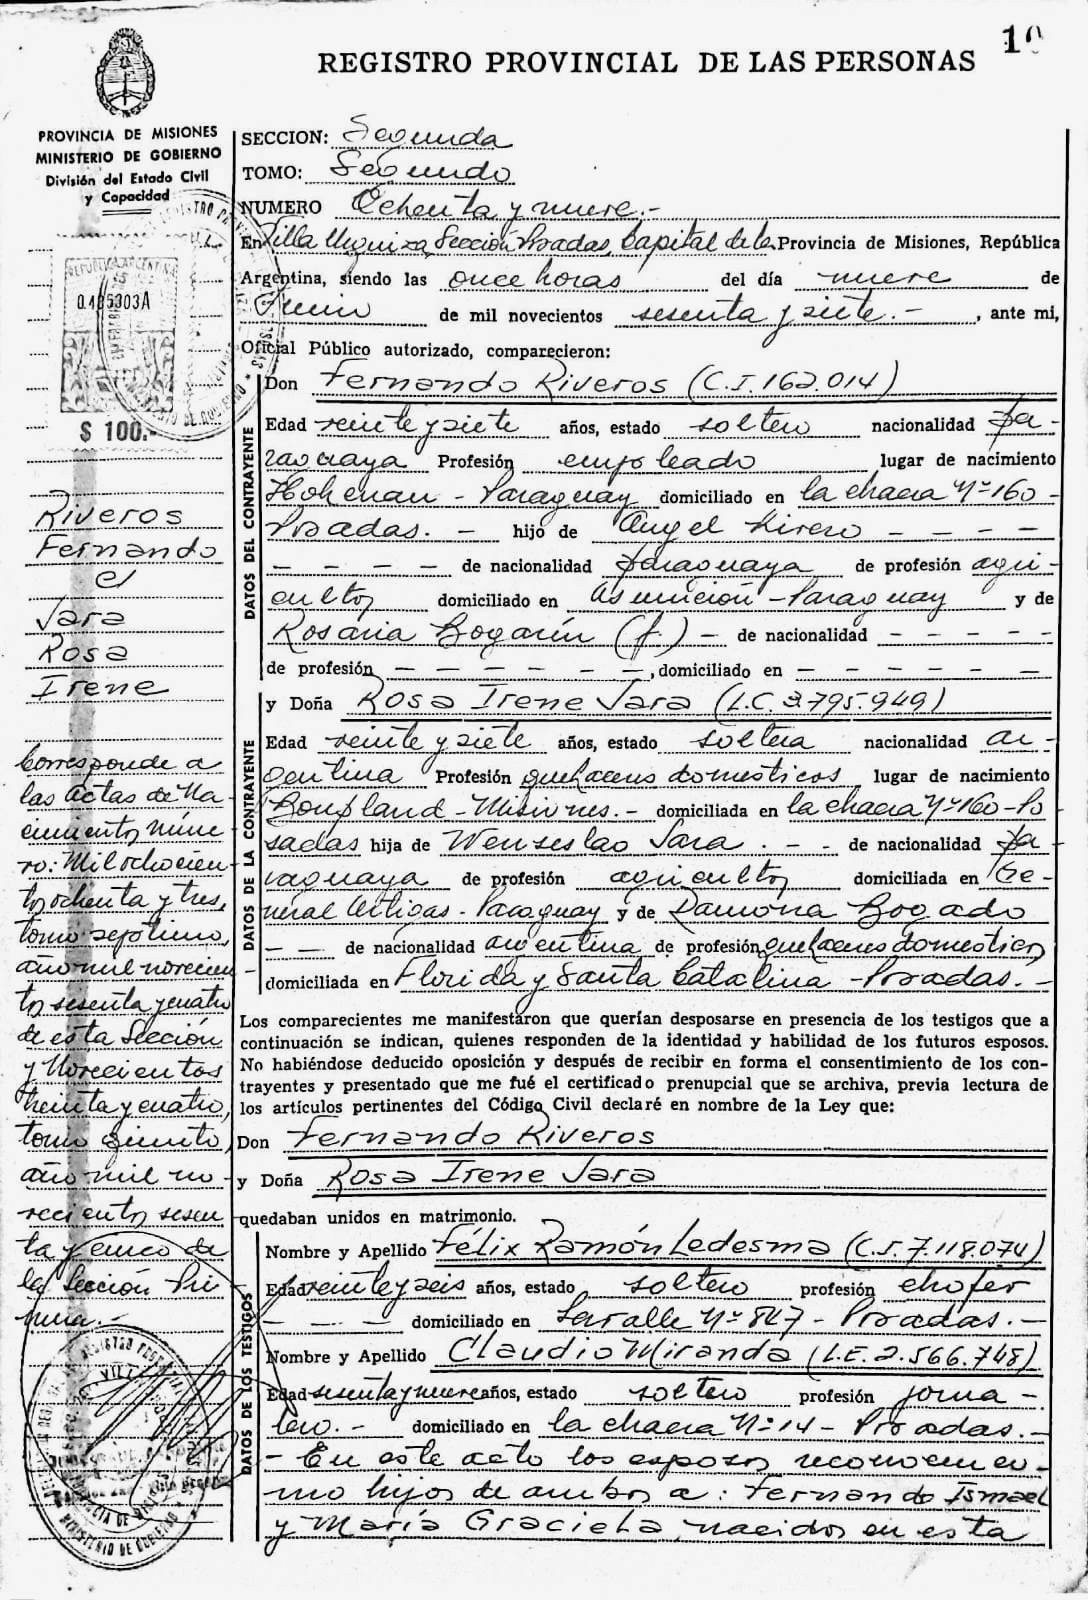 10
REGISTRO PROVINCIAL DE LAS PERSONAS
PROVINCIA DE MISIONES
MINISTERIO DE GOBIERNO
División del Estado Civil
y Capacidad
REPUBLICA ARGENTINA
0.485303A
$ 100.-
Riveros
Fernando
el
Jara
Rosa
Irene
Corresponde a
las actas de Na-
cimientos núme
ro: Mil ochocien
tos ochenta y tres,
tomo septimo,
año mil novecien
tos sesenta y cuatro
de esta Sección
y Novecientos
treinta y cuatro,
tomo quinto,
año mil no-
vecientos sesen
ta y cinco de
la Sección Pri
mera.-
SECCION: Segunda
TOMO: Segundo
NUMERO Ochenta y nueve.-
En Villa Urquiza, Sección Posadas, Capital de la Provincia de Misiones, República
Argentina, siendo las once horas del día nueve de
Junio de mil novecientos sesenta y siete.- , ante mi,
Oficial Público autorizado, comparecieron:
DATOS DEL CONTRAYENTE
Don Fernando Riveros (C.I. 162.014)
Edad veinte y siete años, estado soltero nacionalidad pa-
raguaya Profesión empleado lugar de nacimiento
Hohenau - Paraguay domiciliado en la chacra Nº 160 -
Posadas. - hijo de Angel Rivero - - -
- - - - de nacionalidad paraguaya de profesión agri-
cultor domiciliado en Asunción - Paraguay y de
Rosaria Bogarín (f.) - de nacionalidad - - - - -
de profesión - - - - - - , domiciliado en - - - - - -
DATOS DE LA CONTRAYENTE
y Doña Rosa Irene Jara (L.C. 3.795.949)
Edad veinte y siete años, estado soltera nacionalidad ar-
gentina Profesión quehaceres domésticos lugar de nacimiento
Bonpland - Misiones. - domiciliada en la chacra Nº 160 - Po
sadas hija de Wenseslao Jara . - - de nacionalidad pa-
raguaya de profesión agricultor domiciliada en Ge-
neral Artigas - Paraguay y de Ramona Bogado
- - de nacionalidad argentina de profesión quehaceres domésticos
domiciliada en Florida y Santa Catalina - Posadas. -
Los comparecientes me manifestaron que querían desposarse en presencia de los testigos que a
continuación se indican, quienes responden de la identidad y habilidad de los futuros esposos.
No habiéndose deducido oposición y después de recibir en forma el consentimiento de los con-
trayentes y presentado que me fué el certificado prenupcial que se archiva, previa lectura de
los artículos pertinentes del Código Civil declaré en nombre de la Ley que:
Don Fernando Riveros
y Doña Rosa Irene Jara
quedaban unidos en matrimonio.
DATOS DE LOS TESTIGOS
Nombre y Apellido Félix Ramón Ledesma (C.I. 7.118.074)
Edad veinte y seis años, estado soltero profesión chofer
- - - domiciliado en Lavalle Nº 847 - Posadas. -
Nombre y Apellido Claudio Miranda (L.E. 2.566.748)
Edad sesenta y nueve años, estado soltero profesión jorna-
lero. - domiciliado en la chacra Nº 14 - Posadas. -
- En este acto los esposos reconocen co-
mo hijos de ambos a: Fernando Ismael
y María Graciela, nacidos en esta